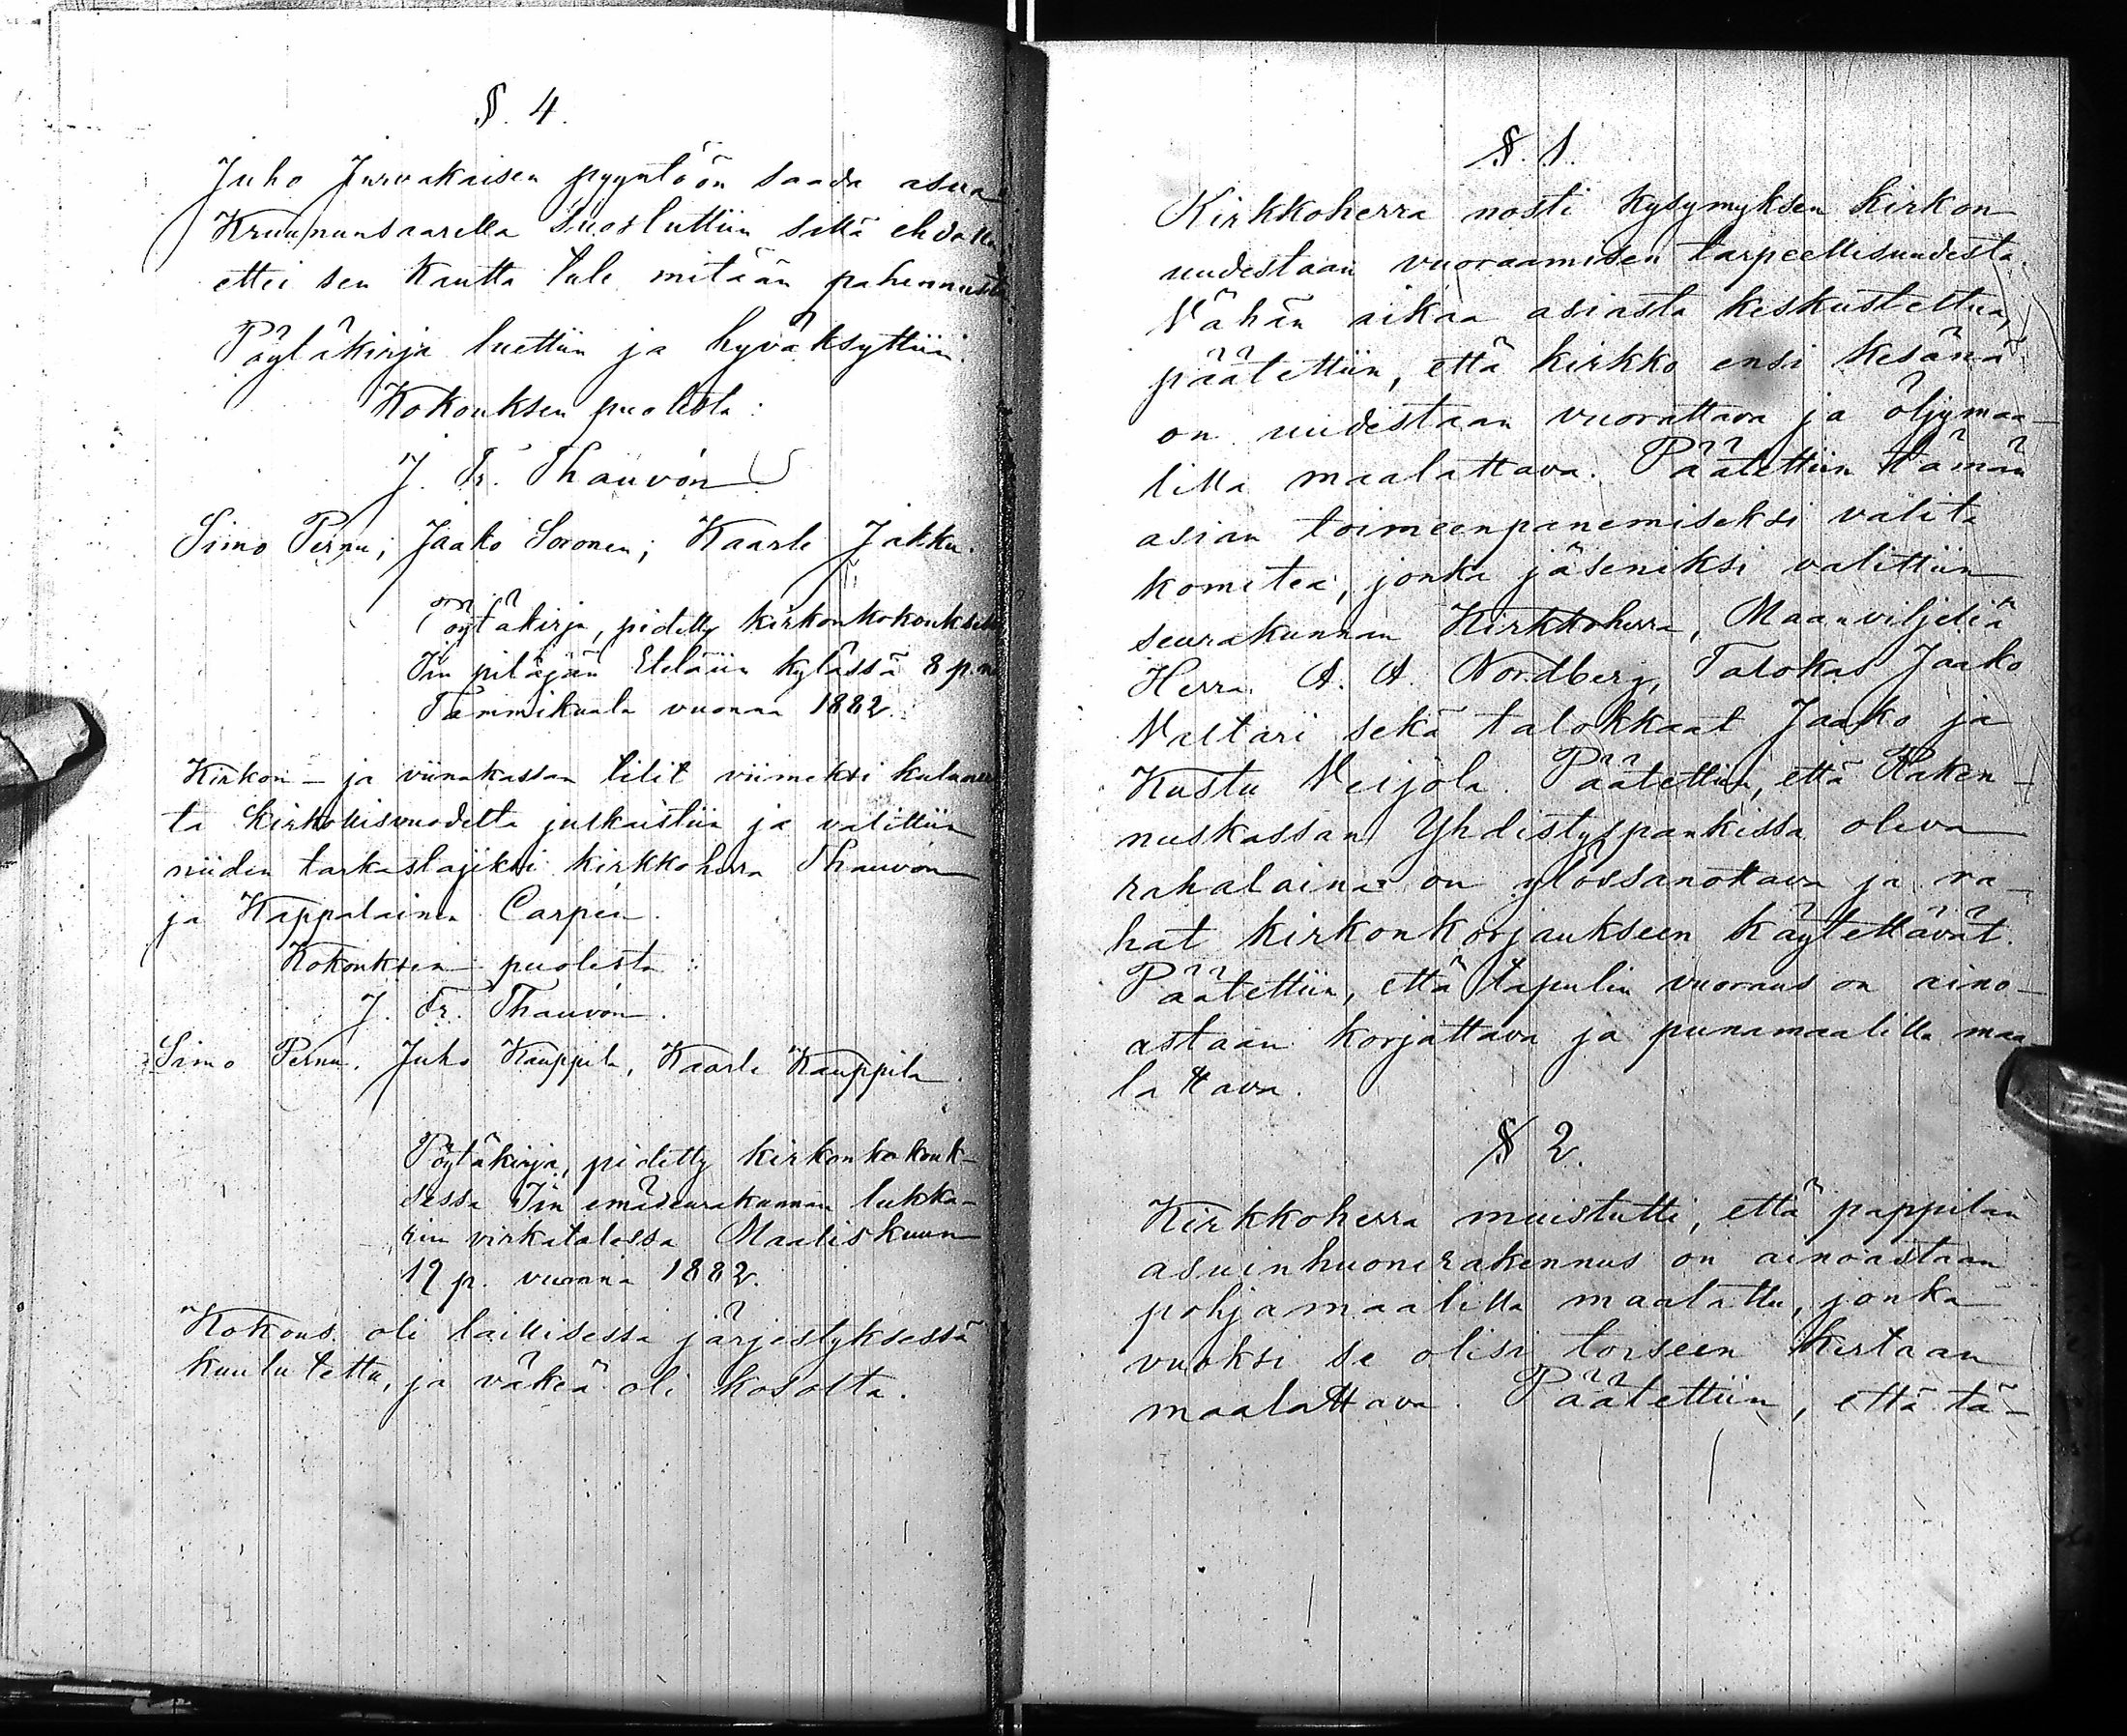 §. 4.
Juho Jurvakaisen pyyntöön saada asua
Kruununsaarella suostuttiin sillä ehdolla
ettei sen kautta tule mitään pahennusta
Pöytäkirja luettiin ja hyväksyttiin.
Kokouksen puolesta:
J. Fr. Thauvón
Simo Pernu; Jaako Soronen; Kaarle Jakku.
Pöytäkirja, pidetty kirkonkokouksessa
Iin pitäjän Eteläiin kylässä 8 p.nä
Tammikuuta vuonna 1882.
Kirkon- ja viinakassan tilit viimeksi kulunees
ta kirkollisvuodelta julkaistiin ja valittiin
niiden tarkastajiksi kirkkoherra Thauvón
ja Kappalainen Carpén.
Kokouksen puolesta:
J. Fr. Thauvón.
Simo Pernu. Juho Kauppila, Kaarle Kauppila.
Pöytäkirja, pidetty kirkonkokouk-
sessa Iin emäseurakunnan lukka-
rin virkatalossa Maaliskuun
19 p. vuonna 1882.
Kokous oli laillisessa järjestyksessä
kuulutettu, ja väkeä oli kosolta.
§. 1.
Kirkkoherra nosti kysymyksen kirkon
uudestaan vuoraamisen tarpeellisuudesta.
Vähän aikaa asiasta keskusteltua,
päätettiin, että kirkko ensi kesänä
on uudestaan vuorattava ja öljymaa-
lilla maalattava. Päätettiin tämän
asian toimeenpanemiseksi valita
komitea, jonka jäseniksi valittiin
seurakunnan Kirkkoherra, Maanviljeliä
Herra A. A. Nordberg, Talokas Jaako
Valtari sekä talokkaat Jaako ja
Kustu Veijola. Päätettiin, että Raken-
nuskassan Yhdistyspankissa oleva
rahalaina on ylössanottava ja ra-
hat kirkonkorjaukseen käytettävät.
Päätettiin, että tapulin vuoraus on aino-
astaan korjattava ja punamaalilla maa
lattava.
§ 2.
Kirkkoherra muistutti, että pappilan
asuinhuonerakennus on ainoastaan
pohjamaalilla maalattu, jonka
vuoksi se olisi torseen kertaan
maalattava. Päätettiin, että tä-